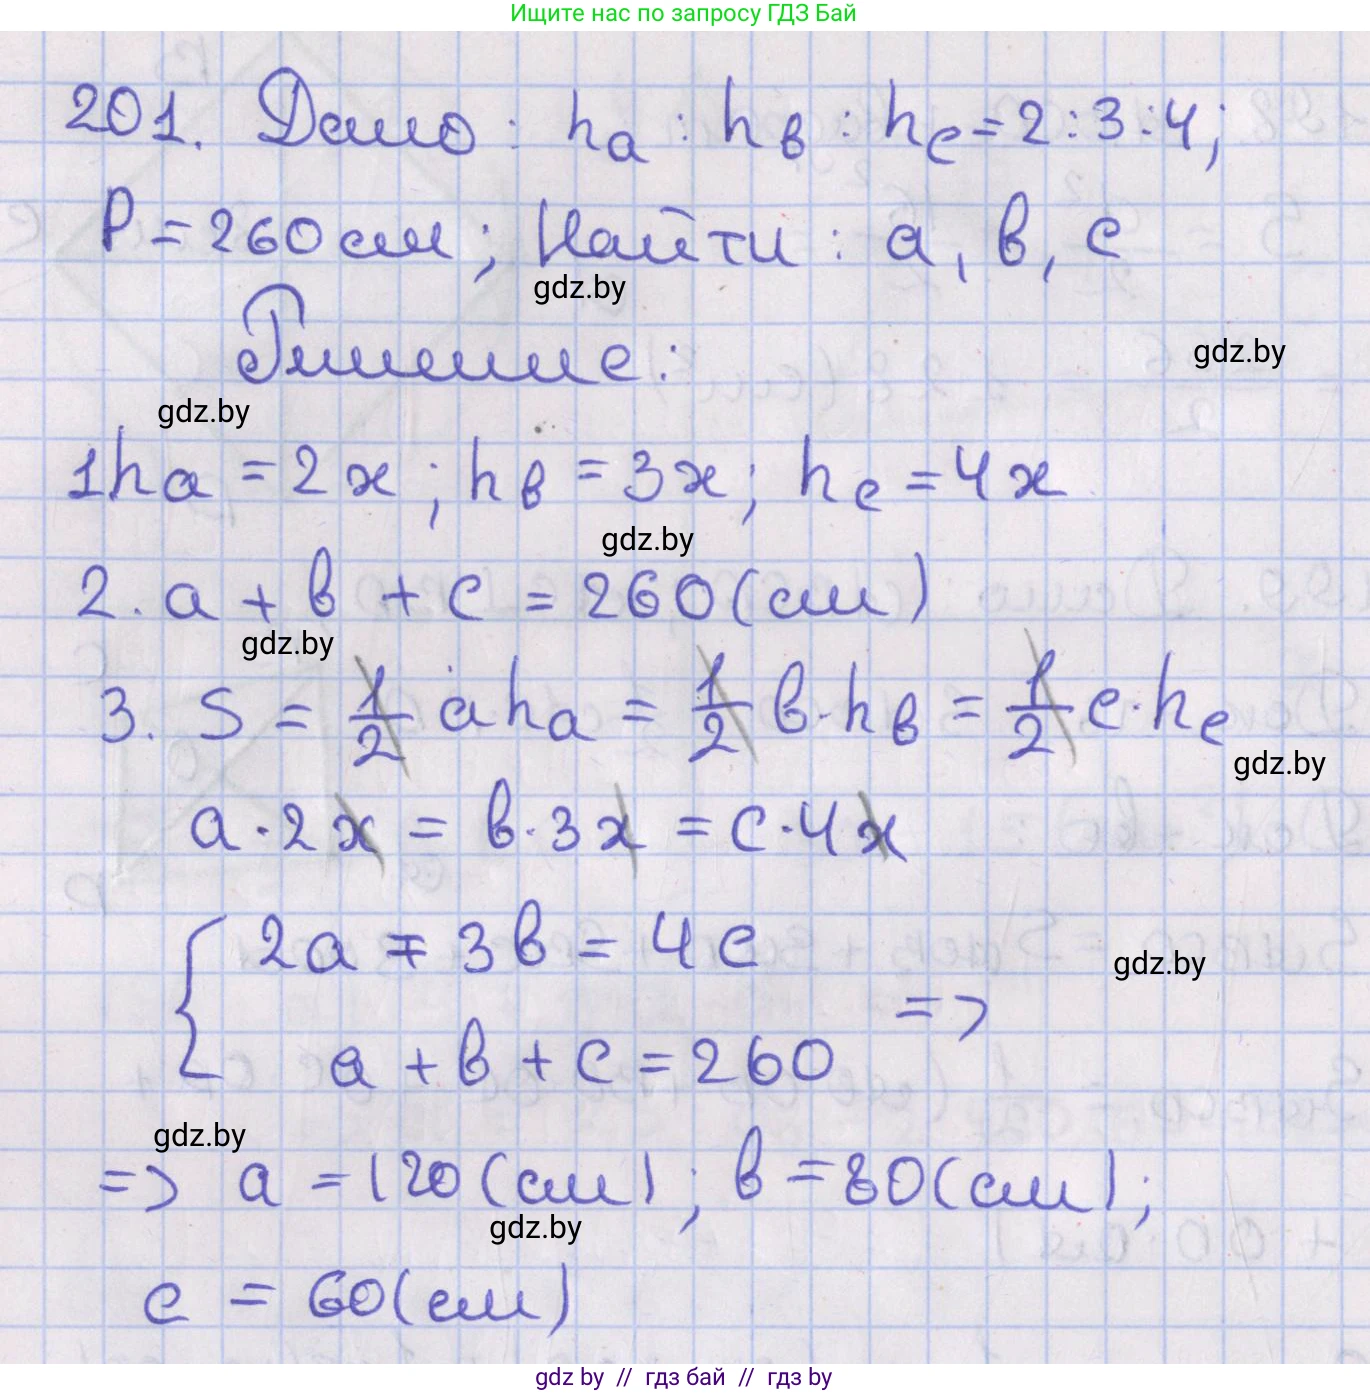 Ищите нас по запросу ГДЗ Бай
201. Дано: hа : hв : hс = 2:3:4;
P = 260 см; Найти: а, в, с
gdz.by
Решение:
gdz.by
gdz.by
1 hа = 2x; hв = 3x; hс = 4x
gdz.by
2. а + в + с = 260 (см)
gdz.by
3. S = 1/2 а hа = 1/2 в · hв = 1/2 с · hс
gdz.by
а · 2x = в · 3x = с · 4x
2а = 3в = 4с
gdz.by
=>
а + в + с = 260
gdz.by
=> а = 120 (см); в = 80 (см);
gdz.by
с = 60 (см)
gdz.by // гдз бай // gdz by